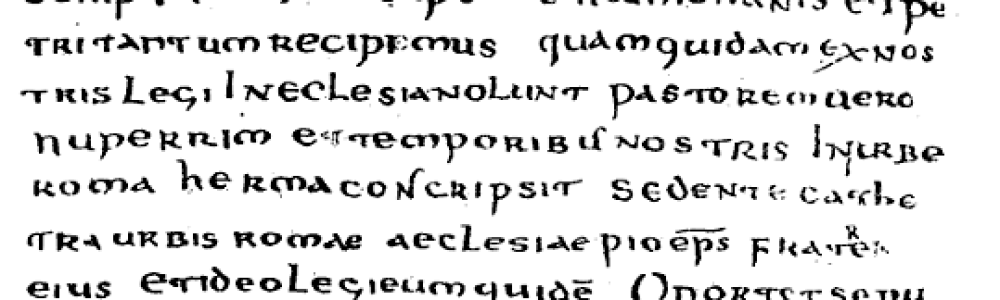 et pe
tri tantum recipemus quam quidam ex nos
tris legi In eclesia nolunt pastorem uero
nuperrim et temporibus nostris In urbe
roma herma conscripsit sedente cathe
tra urbis romae aeclesiae pio ep̅s̅ frater
eius et ideo legi eum quidē Oportet se pu